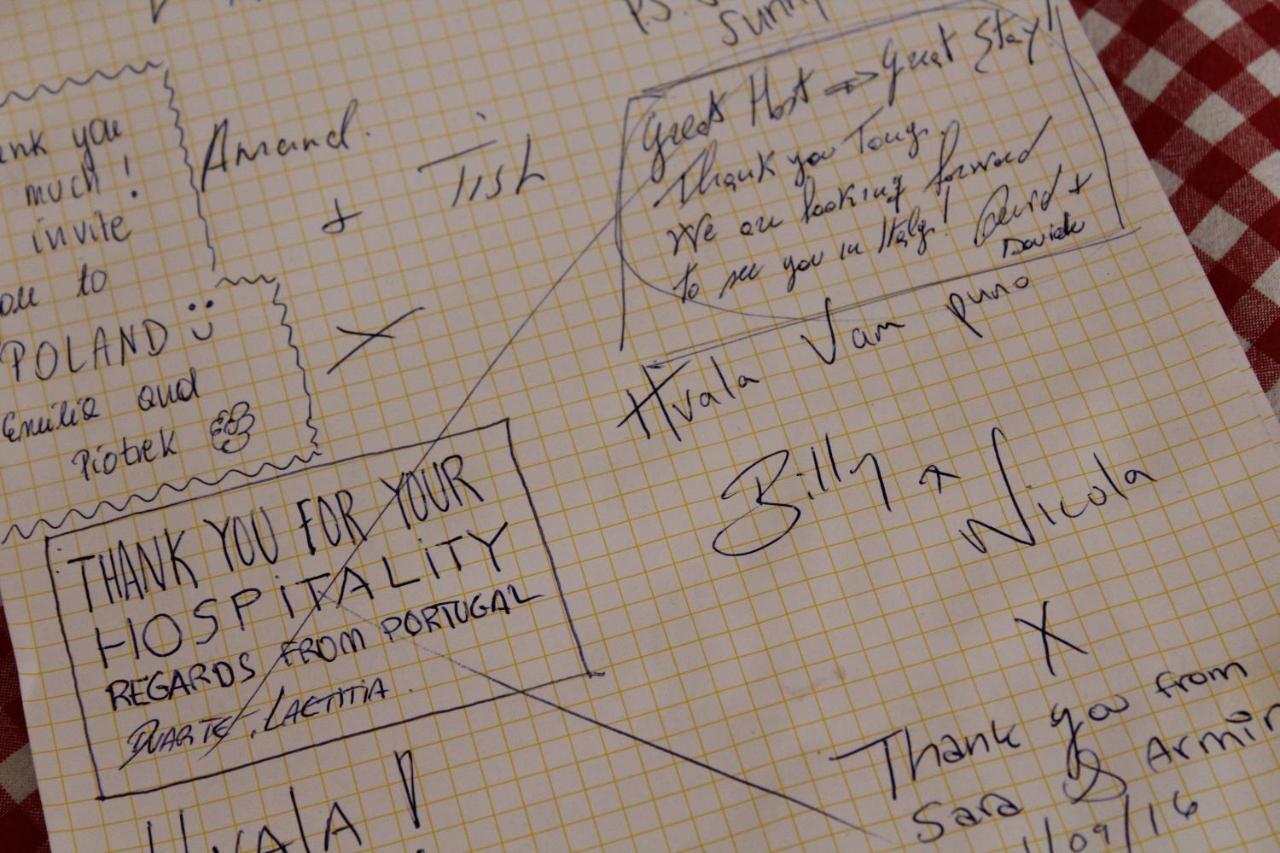 P.S.
sunny
ank you
much!
invite
to
POLAND
Emilia and
Piotrek
Amand.
+
Tish
X
Great Host ⇒ Great Stay!
Thank you Tony.
We are looking forward
to see you in Italy! David +
Davide
Hvala Vam puno
Billy +
Nicola
X
THANK YOU FOR YOUR
HOSPITALITY
REGARDS FROM PORTUGAL
DUARTE, LAETITIA.
Thank you from
Sara & Armin
/09/16
HVALA